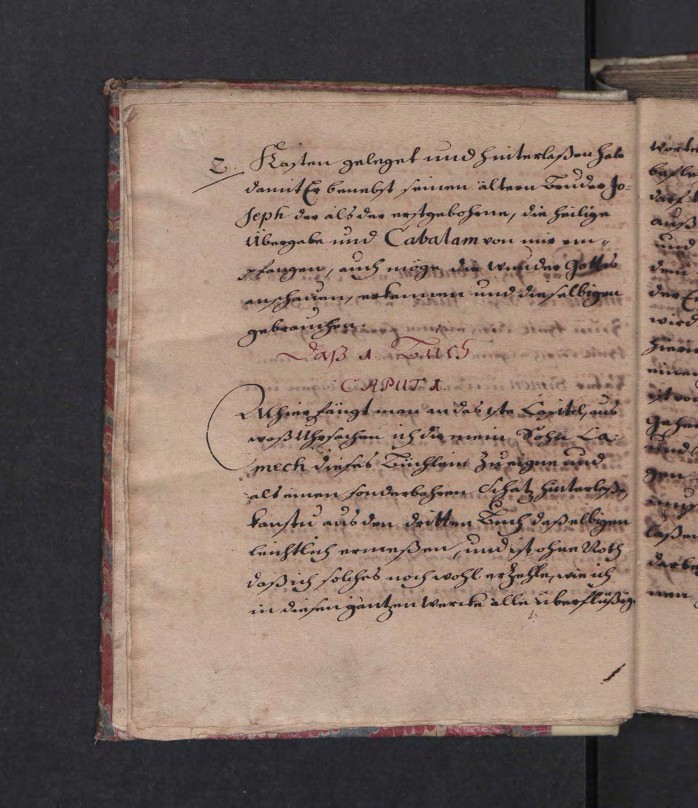 2. Kasten geleget und hinterlaßen habe
damit Er benebst seinen ältern Bruder Jo-
seph der als der erstgebohrne, die heilige
Übergabe und Cabalam von mir em-
pfangen, auch möge die wunder Gottes
anschauen, erkennen und dieselbigen
gebrauchen.
Daß 1. Buch
CAPUT 1.
Alhier fängt man an das 1ste Capitel, aus
waß Uhrsachen ich dir mein Sohn La-
mech dieses Büchlein zu eigne und
als einen sonderbahren Schatz hinterlaße,
kanstu aus den dritten Buch deßelbigen
leichtlich ermeßen, und ist ohne Noth
daß ich solches noch wohl erzehle, wie ich
in diesen gantzen wercke alle überflüßig
worte
und
wird
und
laßen